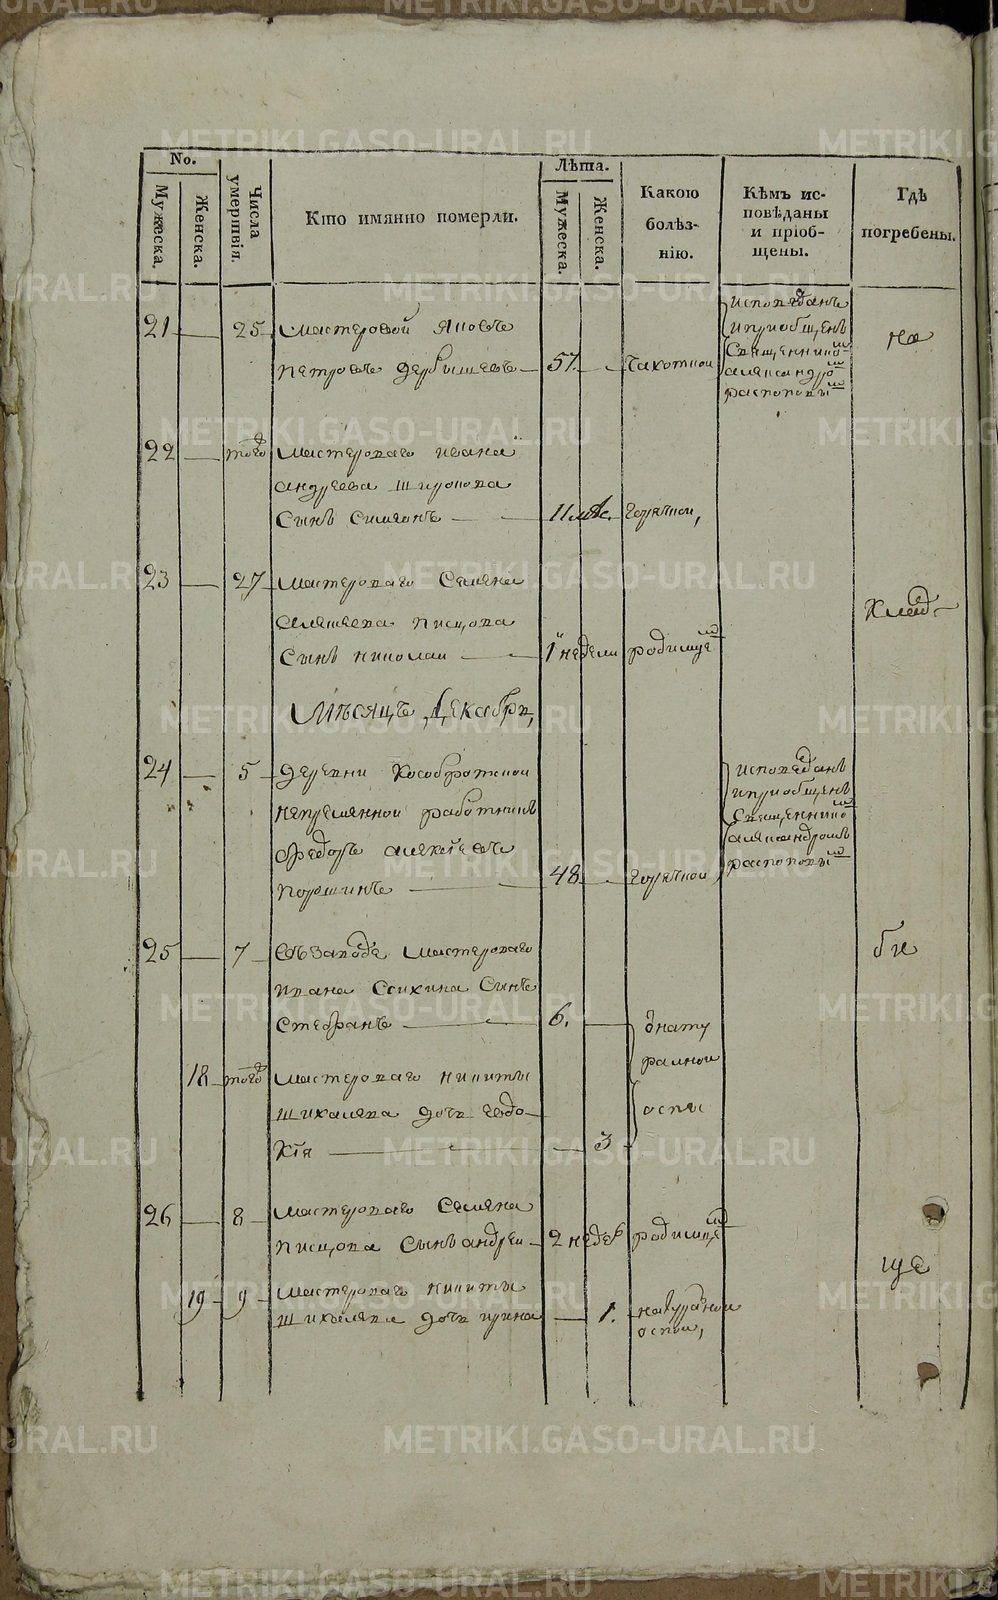 No.
Лѣта.
Мужеска.
Женска.
Числа умершвія.
Кто имянно померли.
Мужеска.
Женска.
Какою
болѣз-
нію.
Кѣмъ ис-
повѣданы
и пріоб-
щены.
Гдѣ
погребены.
21 25 мастеровой Яковъ
Петровъ Дербышевъ 57. Чахотной
исповѣданъ
и приобщенъ
Священнико^мъ
Александро^мъ
распоповы^мъ
на
22 того^ж мастероваго Ивана
Андреева Широкова
Сынъ Симеонъ 11 мѣс. горячкой,
23 27 мастероваго Семена
Писцова
Сынъ Николаи 1 недели родимце^мъ
Клад-
Мѣсяцъ Декабрь,
24 5 деревни Кособродской
непременной работникъ
Федоръ Алексѣевъ
Порошинъ 48 горячкой
исповѣданъ
и приобщенъ
Священнико^мъ
Александромъ
распоповы^мъ
25 7 въ заводе мастероваго
Ивана Сынъ
Стефанъ 6.
би
18 того^ж мастероваго Никиты
Шихалева дочь Евдо-
кія 3
Внату
ралной
оспы
26 8 мастероваго Семена
Писцова Сынъ Андреи 2 неде^л родимце^мъ
19 9 мастероваго Никиты
Шихалева дочь Ирина 1. натуралной
оспои,
ще
METRIKI.GASO-URAL.RU